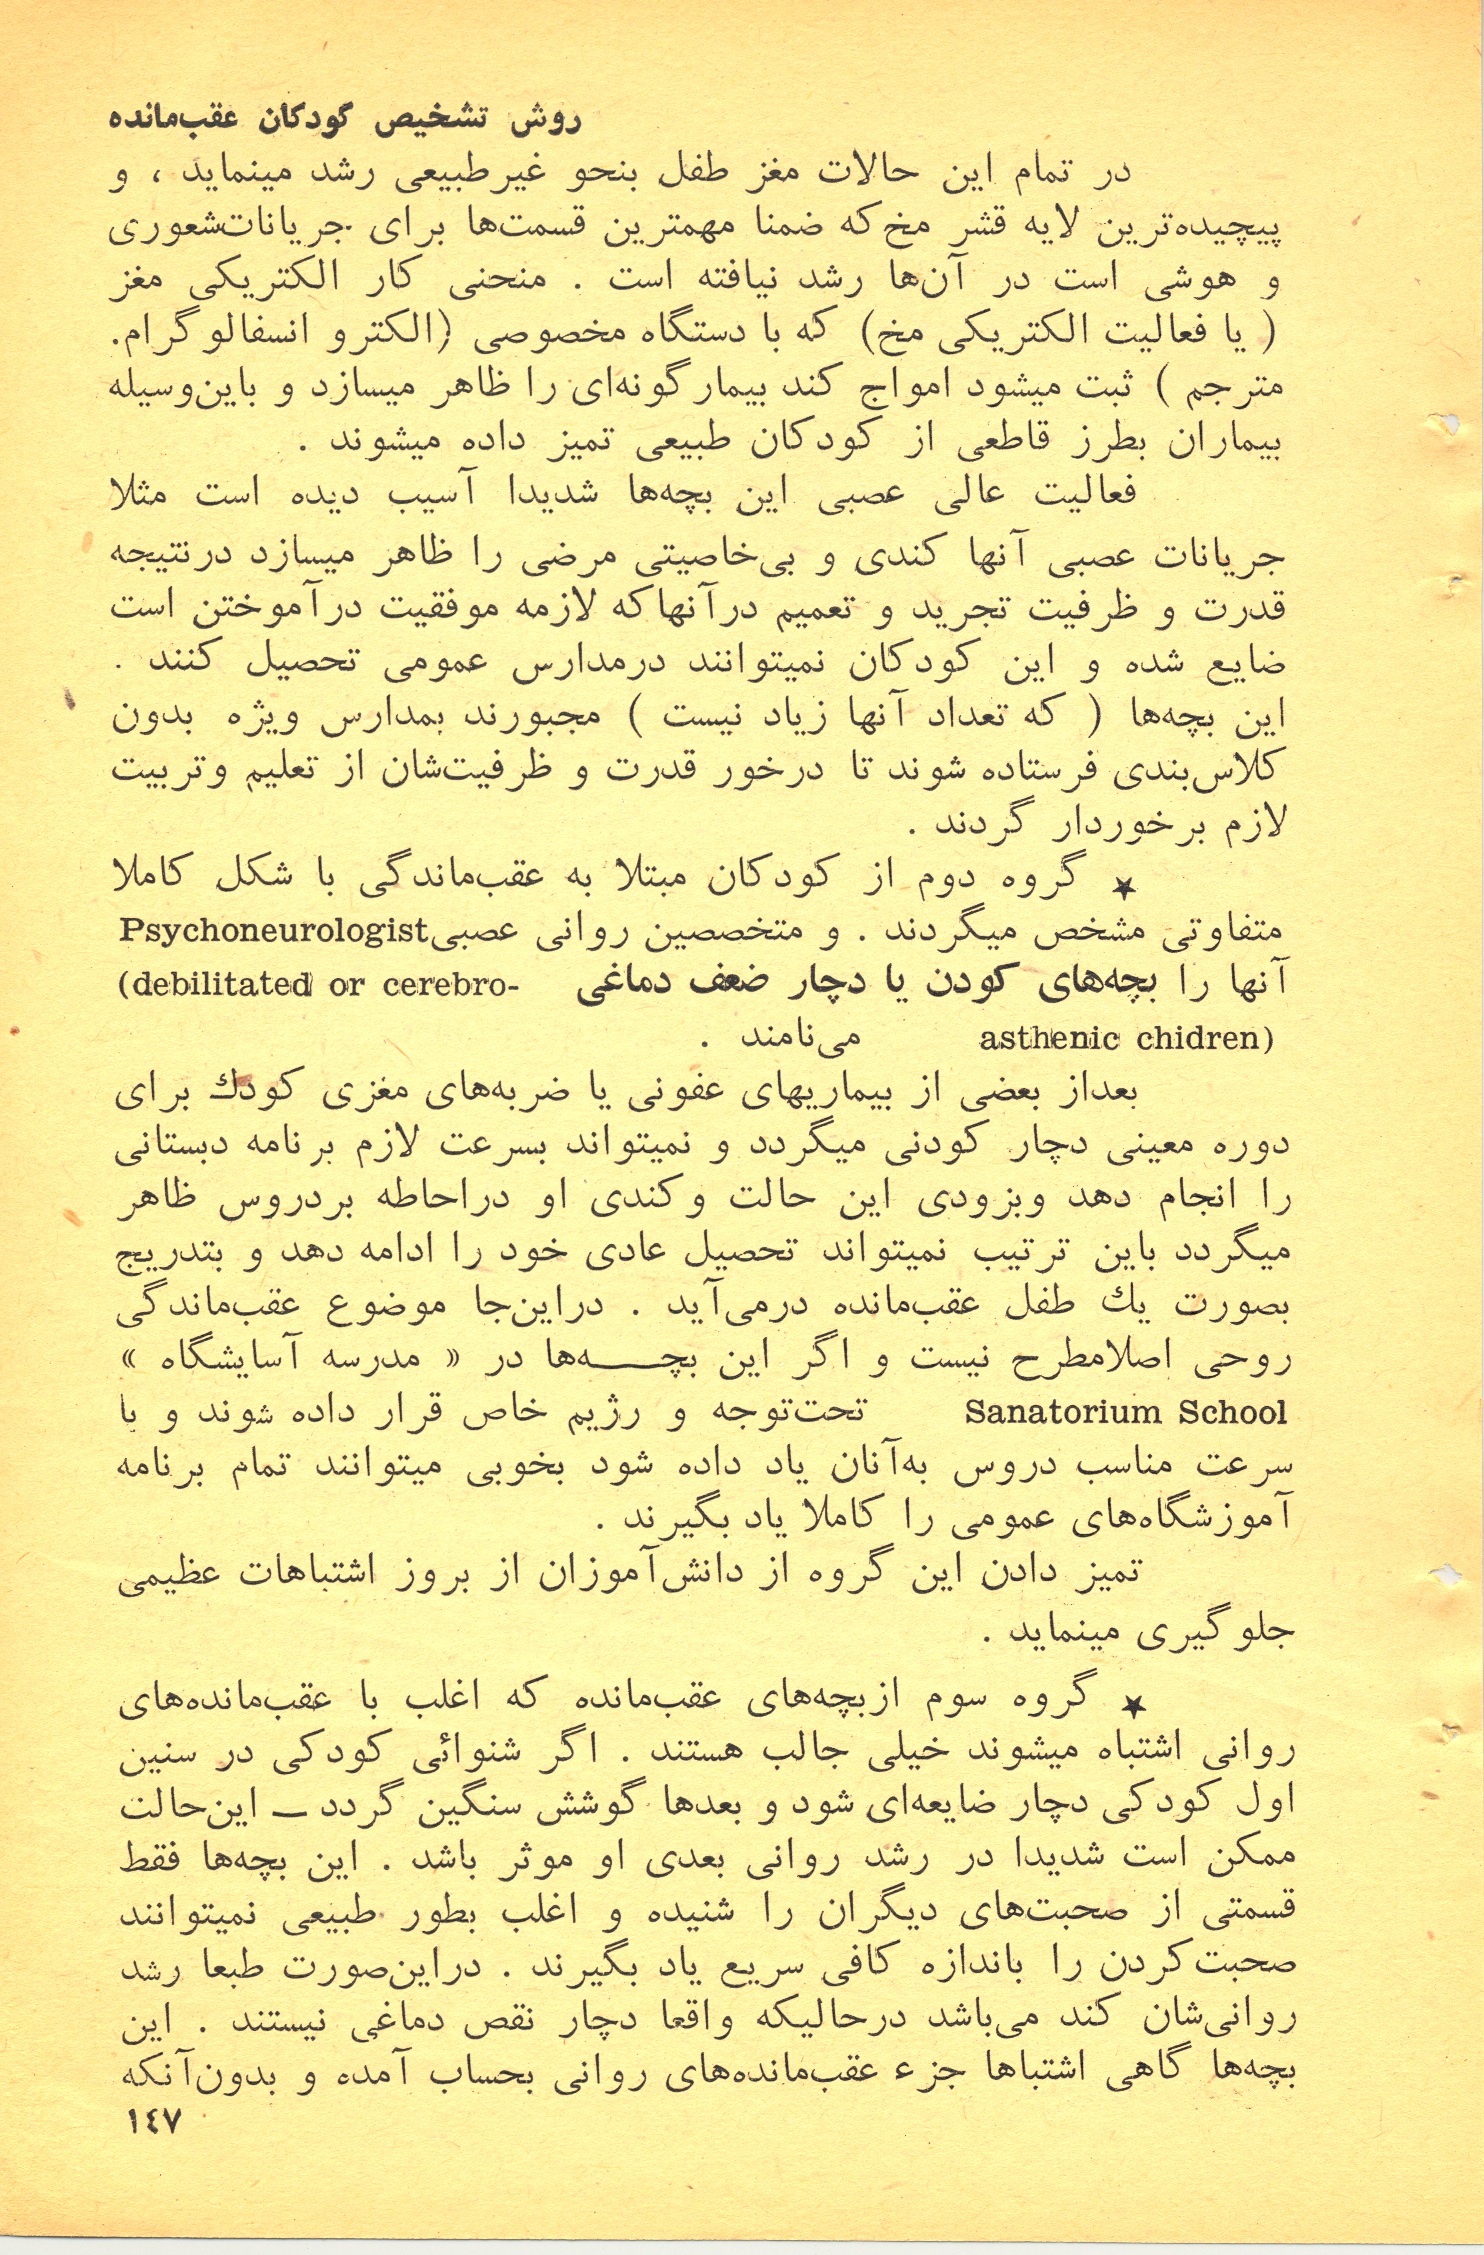 روش تشخیص کودکان عقب‌مانده
در تمام این حالات مغز طفل بنحو غیرطبیعی رشد مینماید ، و
پیچیده‌ترین لایه قشر مخ‌که ضمنا مهمترین قسمت‌ها برای جریانات‌شعوری
و هوشی است در آن‌ها رشد نیافته است . منحنی کار الکتریکی مغز
( یا فعالیت الکتریکی مخ) که با دستگاه مخصوصی (الکترو انسفالوگرام.
مترجم ) ثبت میشود امواج کند بیمارگونه‌ای را ظاهر میسازد و باین‌وسیله
بیماران بطرز قاطعی از کودکان طبیعی تمیز داده میشوند .
فعالیت عالی عصبی این بچه‌ها شدیدا آسیب دیده است مثلا
جریانات عصبی آنها کندی و بی‌خاصیتی مرضی را ظاهر میسازد درنتیجه
قدرت و ظرفیت تجرید و تعمیم درآنهاکه لازمه موفقیت درآموختن است
ضایع شده و این کودکان نمیتوانند درمدارس عمومی تحصیل کنند .
این بچه‌ها ( که تعداد آنها زیاد نیست ) مجبورند بمدارس ویژه بدون
کلاس‌بندی فرستاده شوند تا درخور قدرت و ظرفیت‌شان از تعلیم وتربیت
لازم برخوردار گردند .
★ گروه دوم از کودکان مبتلا به عقب‌ماندگی با شکل کاملا
متفاوتی مشخص میگردند . و متخصصین روانی عصبیPsychoneurologist
آنها را بچه‌های کودن یا دچار ضعف دماغی (debilitated or cerebro-
asthenic chidren) می‌نامند .
بعداز بعضی از بیماریهای عفونی یا ضربه‌های مغزی کودك برای
دوره معینی دچار کودنی میگردد و نمیتواند بسرعت لازم برنامه دبستانی
را انجام دهد وبزودی این حالت وکندی او دراحاطه بردروس ظاهر
میگردد باین ترتیب نمیتواند تحصیل عادی خود را ادامه دهد و بتدریج
بصورت یك طفل عقب‌مانده درمی‌آید . دراین‌جا موضوع عقب‌ماندگی
روحی اصلامطرح نیست و اگر این بچـــه‌ها در « مدرسه آسایشگاه »
Sanatorium School تحت‌توجه و رژیم خاص قرار داده شوند و با
سرعت مناسب دروس به‌آنان یاد داده شود بخوبی میتوانند تمام برنامه
آموزشگاه‌های عمومی را کاملا یاد بگیرند .
تمیز دادن این گروه از دانش‌آموزان از بروز اشتباهات عظیمی
جلوگیری مینماید .
★ گروه سوم ازبچه‌های عقب‌مانده که اغلب با عقب‌مانده‌های
روانی اشتباه میشوند خیلی جالب هستند . اگر شنوائی کودکی در سنین
اول کودکی دچار ضایعه‌ای شود و بعدها گوشش سنگین گردد ــ این‌حالت
ممکن است شدیدا در رشد روانی بعدی او موثر باشد . این بچه‌ها فقط
قسمتی از صحبت‌های دیگران را شنیده و اغلب بطور طبیعی نمیتوانند
صحبت‌کردن را باندازه کافی سریع یاد بگیرند . دراین‌صورت طبعا رشد
روانی‌شان کند می‌باشد درحالیکه واقعا دچار نقص دماغی نیستند . این
بچه‌ها گاهی اشتباها جزء عقب‌مانده‌های روانی بحساب آمده و بدون‌آنکه
١٤٧